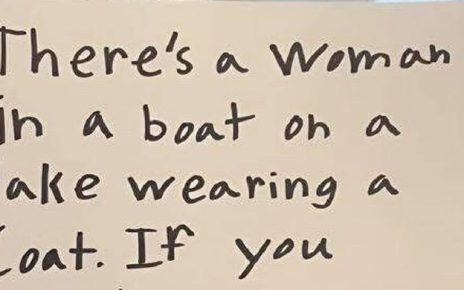 There's a Woman
in a boat on a
lake wearing a
Coat. If you